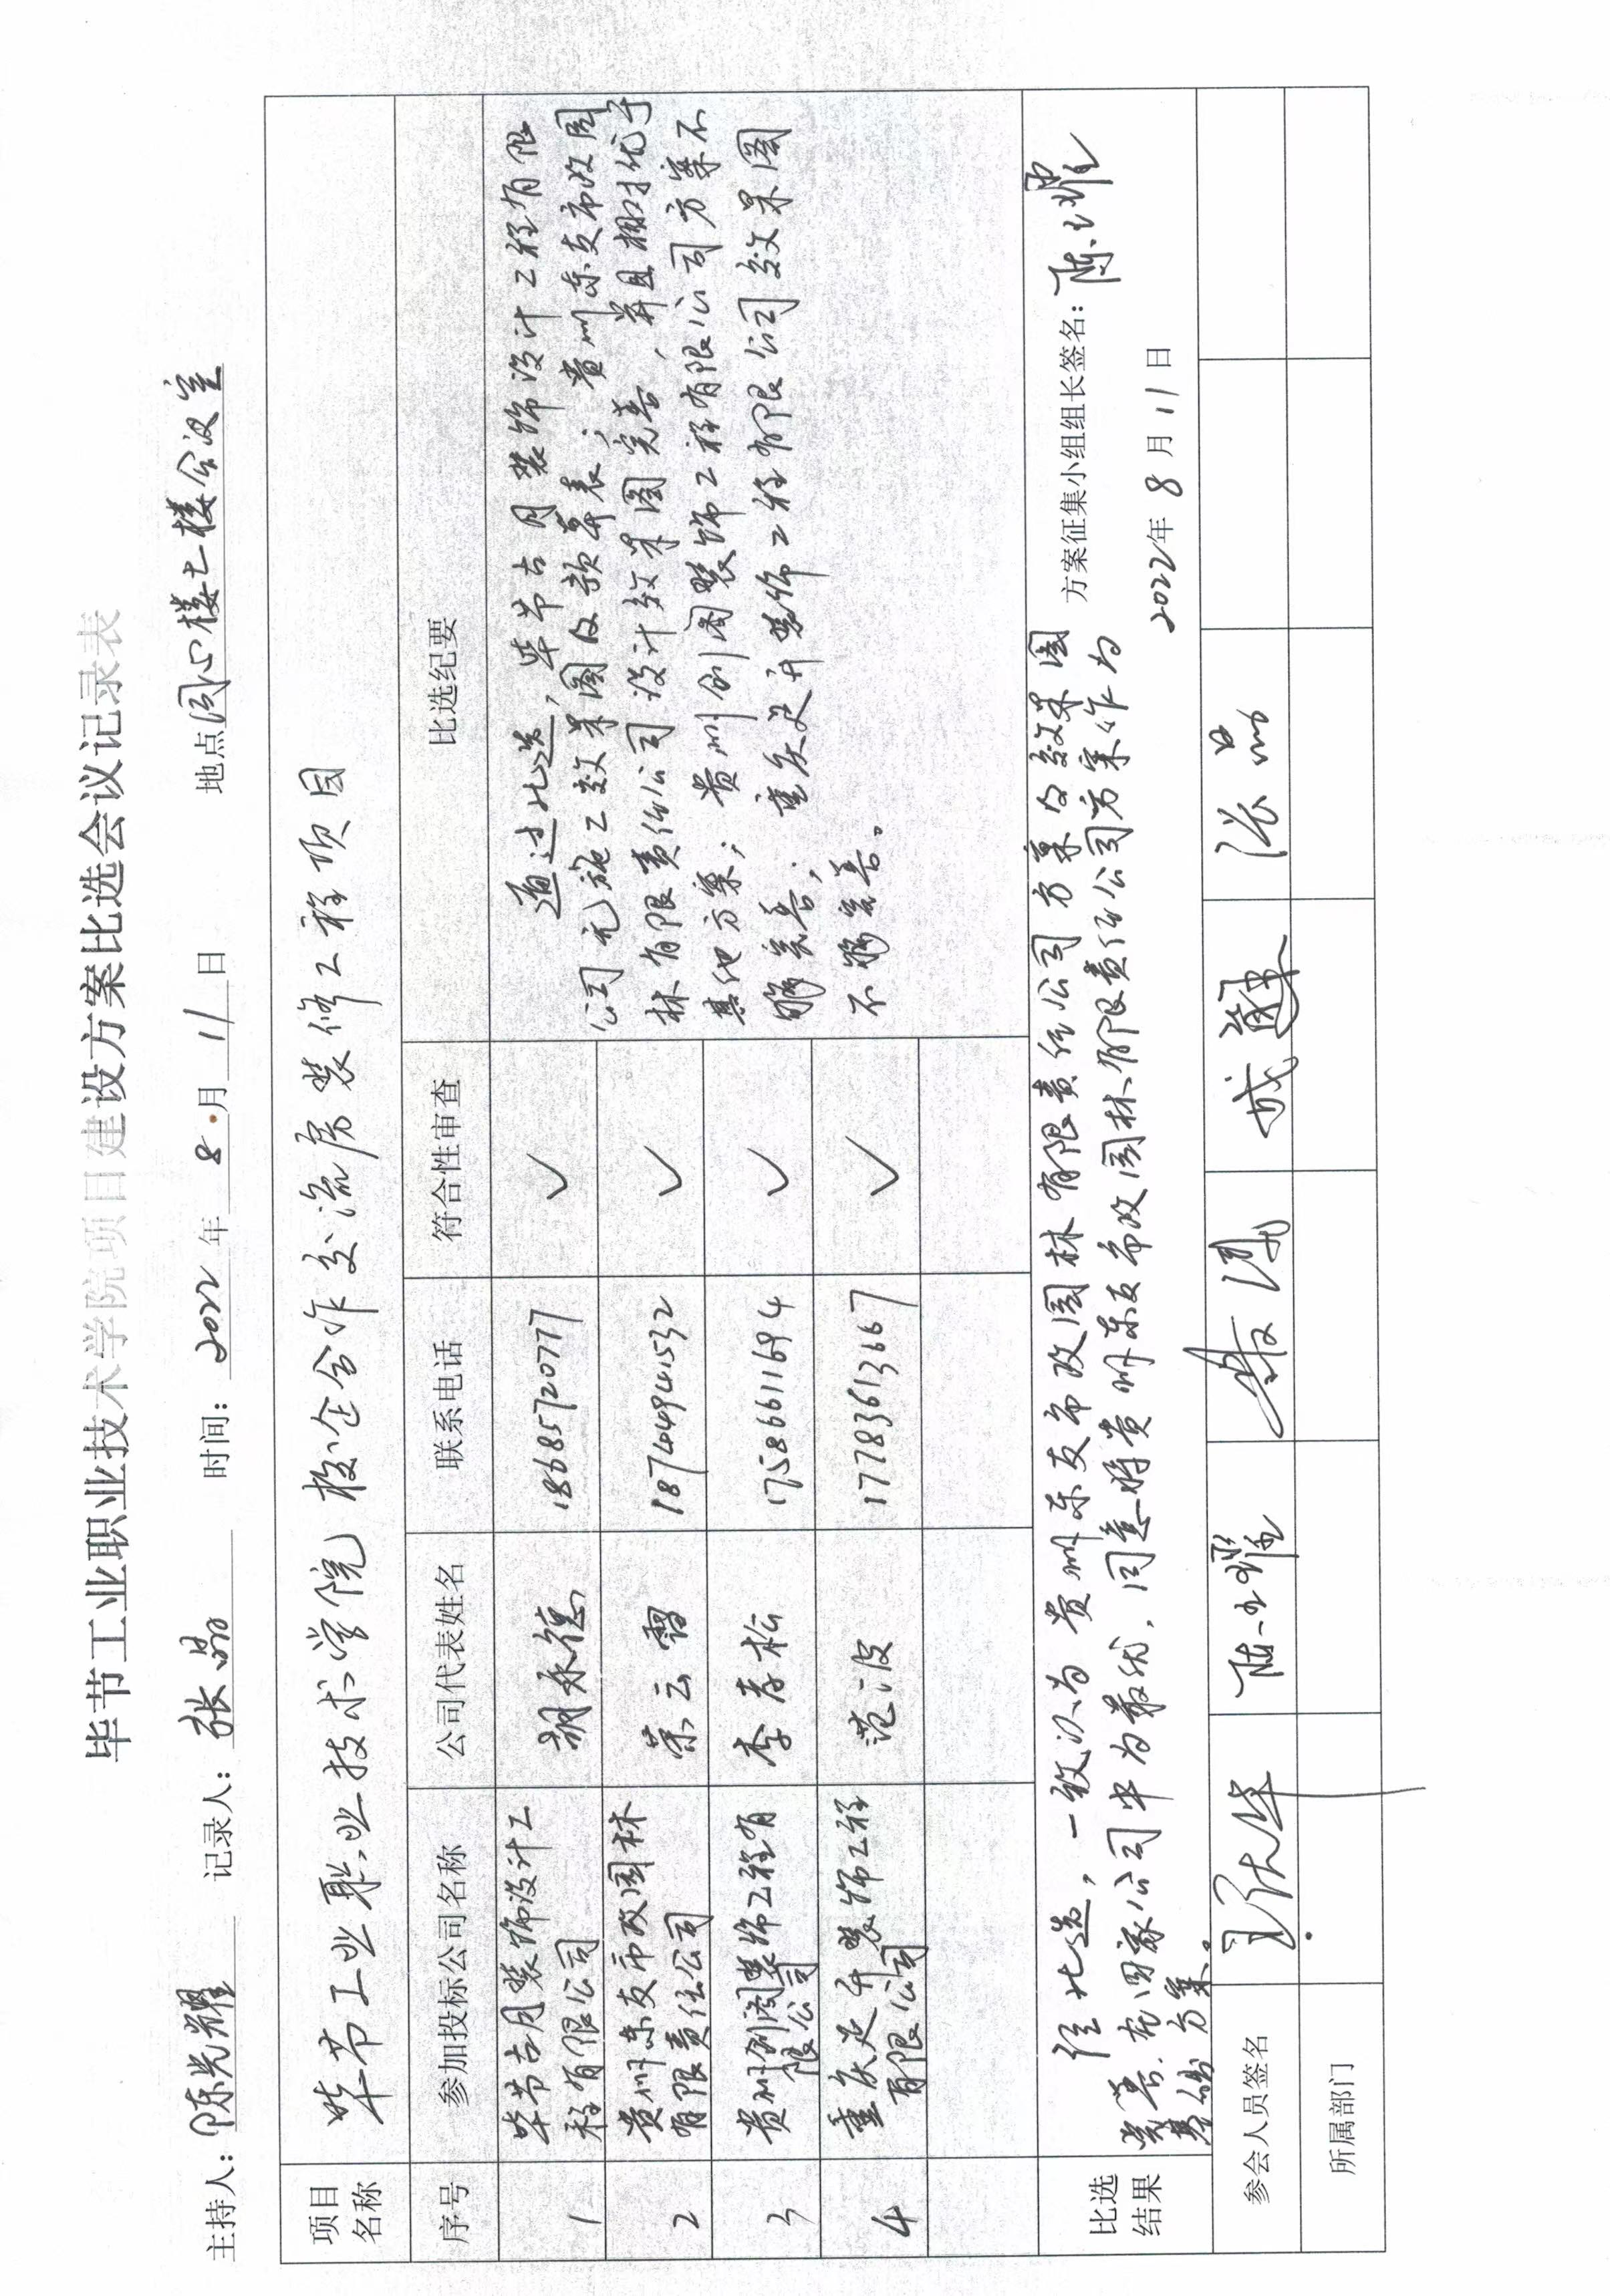 毕节工业职业技术学院项目建设方案比选会议记录表
主持人：陈光耀 记录人：张晶 时间：2022年8月11日 地点同心楼七楼会议室
项目名称 毕节工业职业技术学院校企合作交流房装修工程项目
序号 参加投标公司名称 公司代表姓名 联系电话 符合性审查 比选纪要
1 毕节古月装饰设计工
程有限公司 胡永德 18685720777 ✓
2 贵州东友市政园林
有限责任公司 荣云霄 18744941532 ✓
3 贵州创阁装饰工程有
限公司 李孝松 17586611694 ✓
4 重庆足升装饰工程
有限公司 范波 17783613667 ✓
通过比选，毕节古月装饰设计工程有限
公司无施工效果图及预算表；贵州东友市政园
林有限责任公司设计效果图完善，并且相对优于
其他方案；贵州创阁装饰工程有限公司方案不
够完善；重庆足升装饰工程有限公司效果图
不够完善。
比选
结果
经比选，一致认为贵州东友市政园林有限责任公司方案的效果图
完善，在四家公司中为最优，同意将贵州东友市政园林有限责任公司方案作为
其他方案。
方案征集小组组长签名：陈光耀
2022年8月11日
参会人员签名 陈光耀 张晶
所属部门